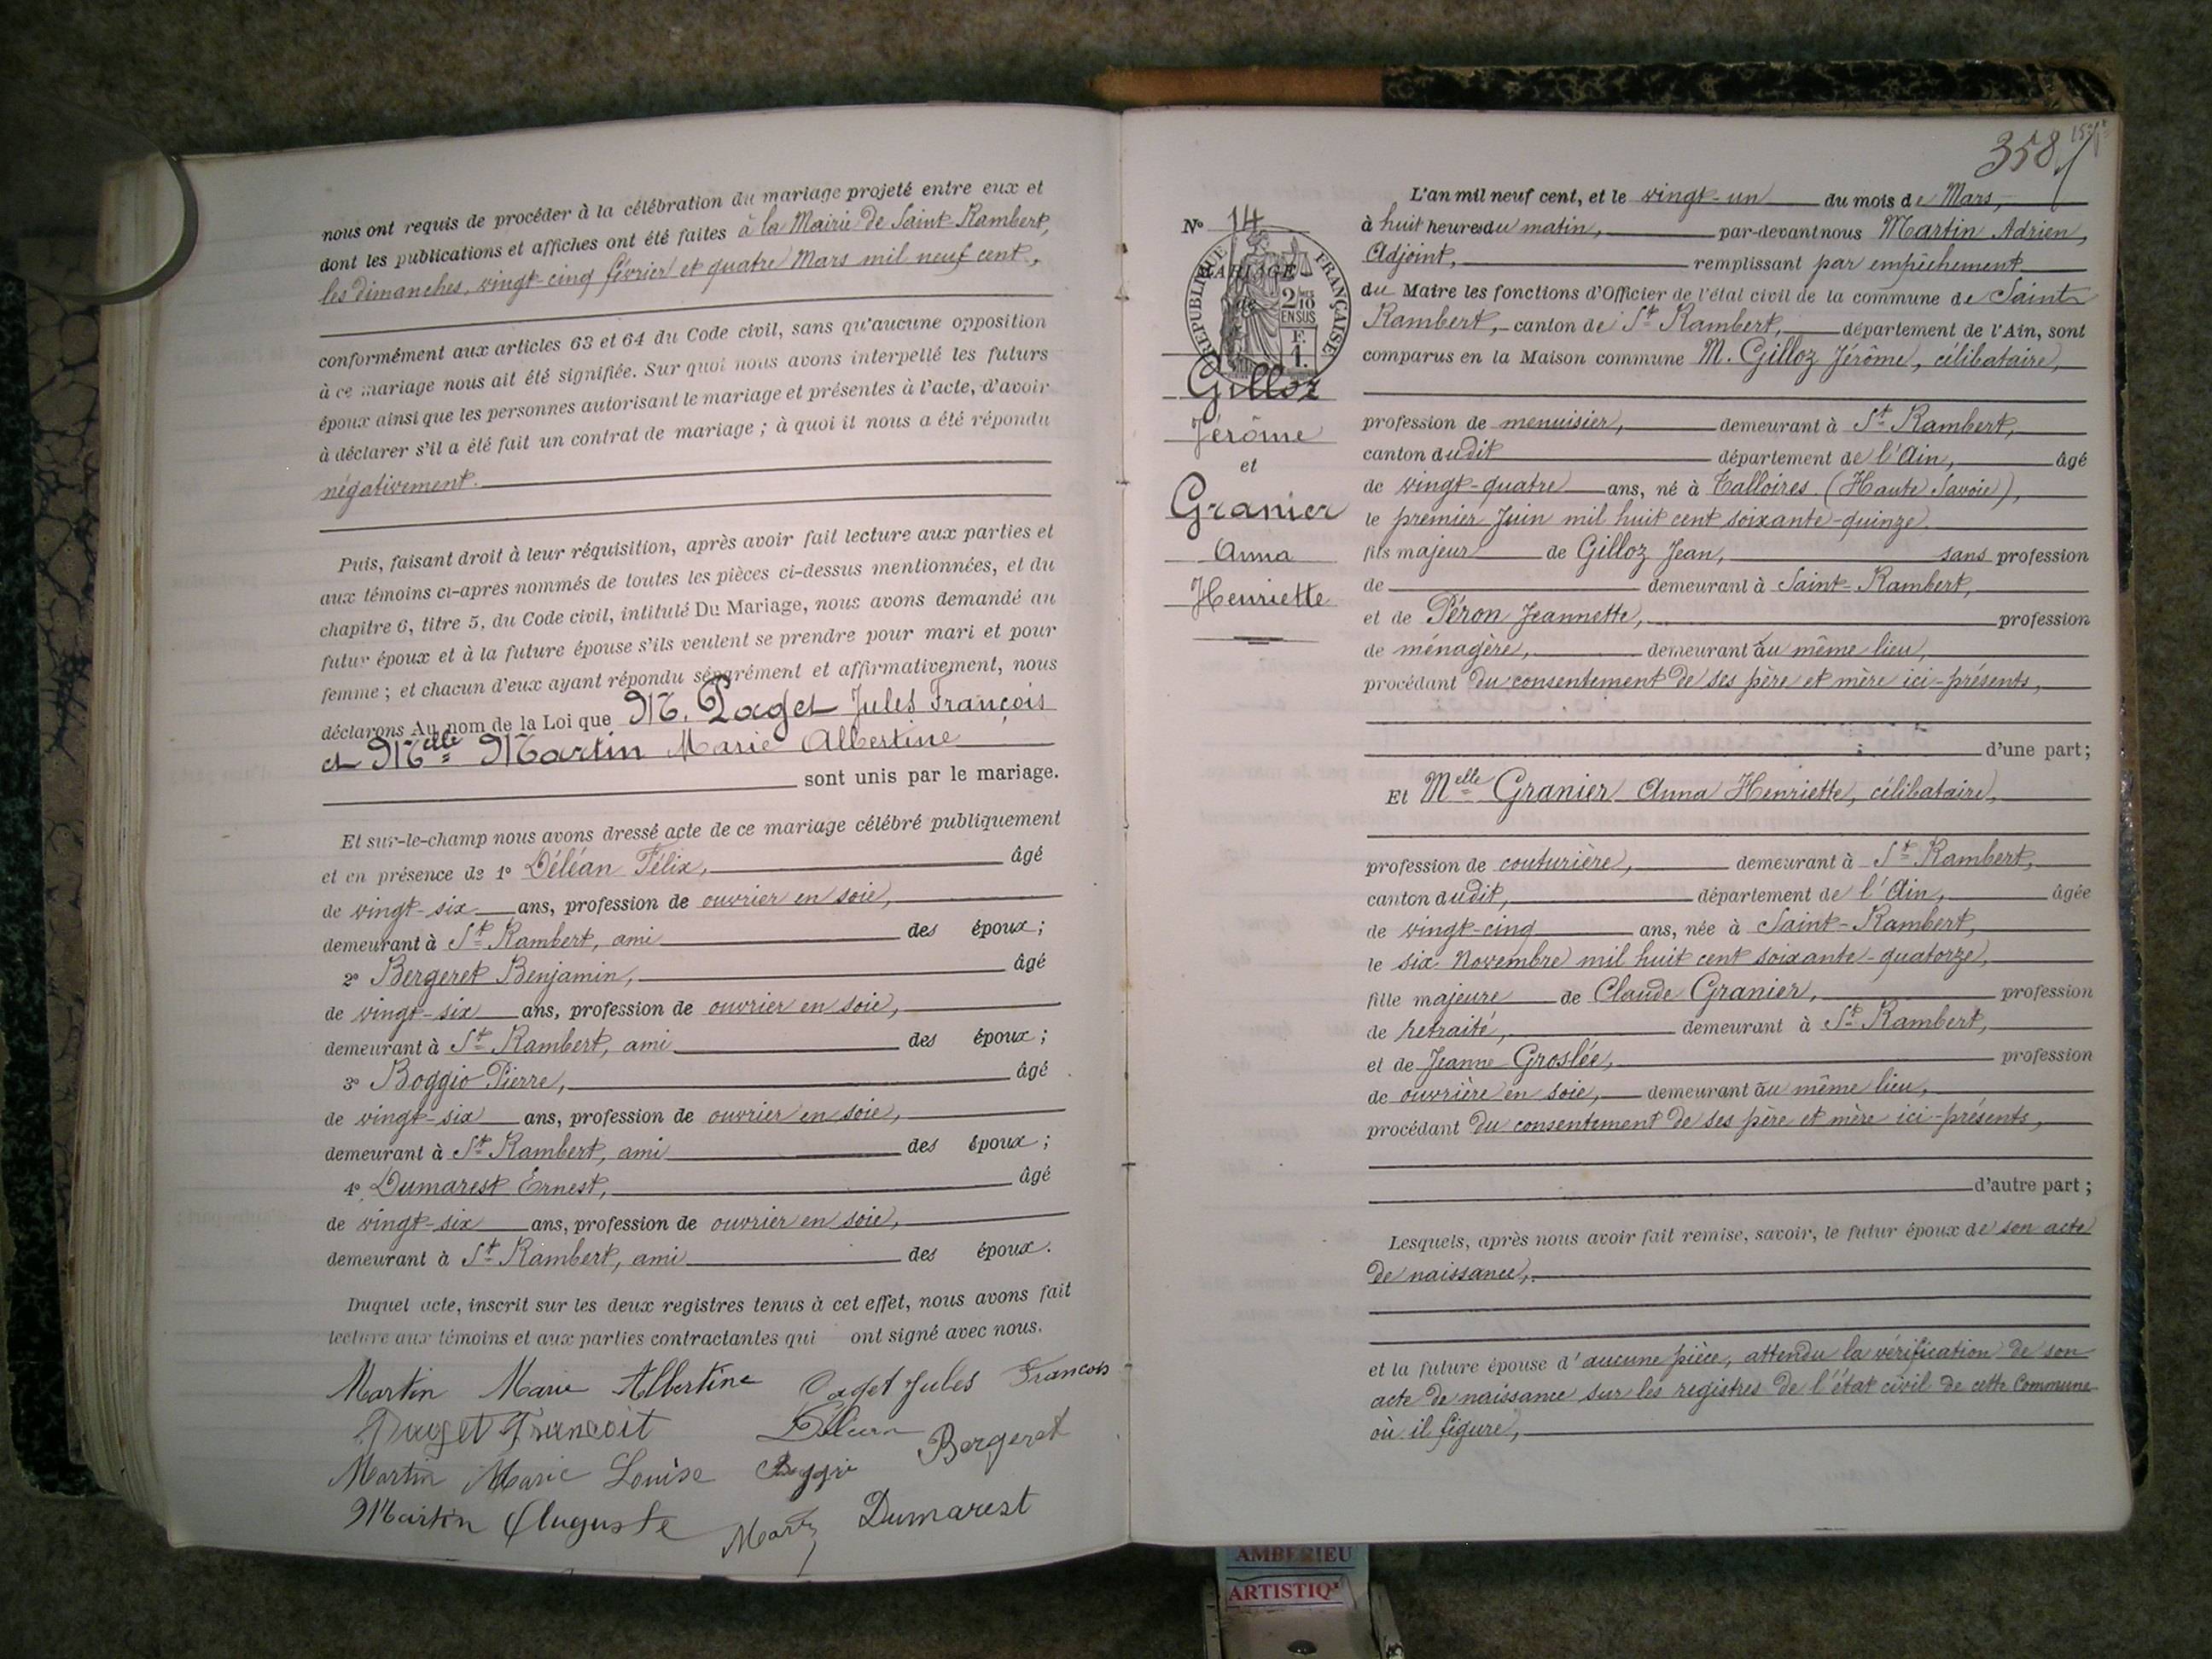 nous ont requis de procéder à la célébration du mariage projeté entre eux et
dont les publications et affiches ont été faites à la Mairie de Saint-Rambert,
les dimanches, vingt-cinq février et quatre Mars mil neuf cent,
conformément aux articles 63 et 64 du Code civil, sans qu'aucune opposition
à ce mariage nous ait été signifiée. Sur quoi nous avons interpellé les futurs
époux ainsi que les personnes autorisant le mariage et présentes à l'acte, d'avoir
à déclarer s'il a été fait un contrat de mariage ; à quoi il nous a été répondu
négativement.
Puis, faisant droit à leur réquisition, après avoir fait lecture aux parties et
aux témoins ci-après nommés de toutes les pièces ci-dessus mentionnées, et du
chapitre 6, titre 5, du Code civil, intitulé Du Mariage, nous avons demandé au
futur époux et à la future épouse s'ils veulent se prendre pour mari et pour
femme ; et chacun d'eux ayant répondu séparément et affirmativement, nous
déclarons Au nom de la Loi que M. Paget Jules François
et Melle Martin Marie Albertine
sont unis par le mariage.
Et sur-le-champ nous avons dressé acte de ce mariage célébré publiquement
et en présence de 1° Déléan Félix, âgé
de vingt-six ans, profession de ouvrier en soie,
demeurant à St Rambert, ami des époux ;
2° Bergeret Benjamin, âgé
de vingt-six ans, profession de ouvrier en soie,
demeurant à St Rambert, ami des époux ;
3° Boggio Pierre, âgé
de vingt-six ans, profession de ouvrier en soie,
demeurant à St Rambert, ami des époux ;
4° Dumarest Ernest, âgé
de vingt-six ans, profession de ouvrier en soie,
demeurant à St Rambert, ami des époux.
Duquel acte, inscrit sur les deux registres tenus à cet effet, nous avons fait
lecture aux témoins et aux parties contractantes qui ont signé avec nous.
Martin Marie Albertine Paget Jules Francois
Paget Francoit
Bergeret
Martin Marie Louise Boggio
Martin Auguste Dumarest
358
N° 14
RÉPUBLIQUE FRANÇAISE
MARIAGE
de
2/10MES
EN SUS
F.
1.
Gilloz
Jérôme
et
Granier
Anna
Henriette
L'an mil neuf cent, et le vingt-un du mois de Mars,
à huit heures du matin, par-devant nous Martin Adrien,
Adjoint, remplissant par empêchement
du Maire les fonctions d'Officier de l'état civil de la commune de Saint
Rambert, canton de St Rambert, département de l'Ain, sont
comparus en la Maison commune M. Gilloz Jérôme, célibataire,
profession de menuisier, demeurant à St Rambert,
canton dudit département de l'Ain, âgé
de vingt-quatre ans, né à Talloires (Haute Savoie),
le premier Juin mil huit cent soixante-quinze,
fils majeur de Gilloz Jean, sans profession
de demeurant à Saint-Rambert,
et de Péron Jeannette, profession
de ménagère, demeurant au même lieu,
procédant du consentement de ses père et mère ici-présents,
d'une part;
Et Melle Granier Anna Henriette, célibataire,
profession de couturière, demeurant à St Rambert,
canton dudit, département de l'Ain, âgée
de vingt-cinq ans, née à Saint-Rambert,
le six Novembre mil huit cent soixante-quatorze,
fille majeure de Claude Granier, profession
de retraité, demeurant à St Rambert,
et de Jeanne Groslée, profession
de ouvrière en soie, demeurant au même lieu,
procédant du consentement de ses père et mère ici-présents,
d'autre part ;
Lesquels, après nous avoir fait remise, savoir, le futur époux de son acte
de naissance,
et la future épouse d'aucune pièce, attendu la vérification de son
acte de naissance sur les registres de l'état civil de cette Commune
où il figure,
AMBERIEU
ARTISTIQ